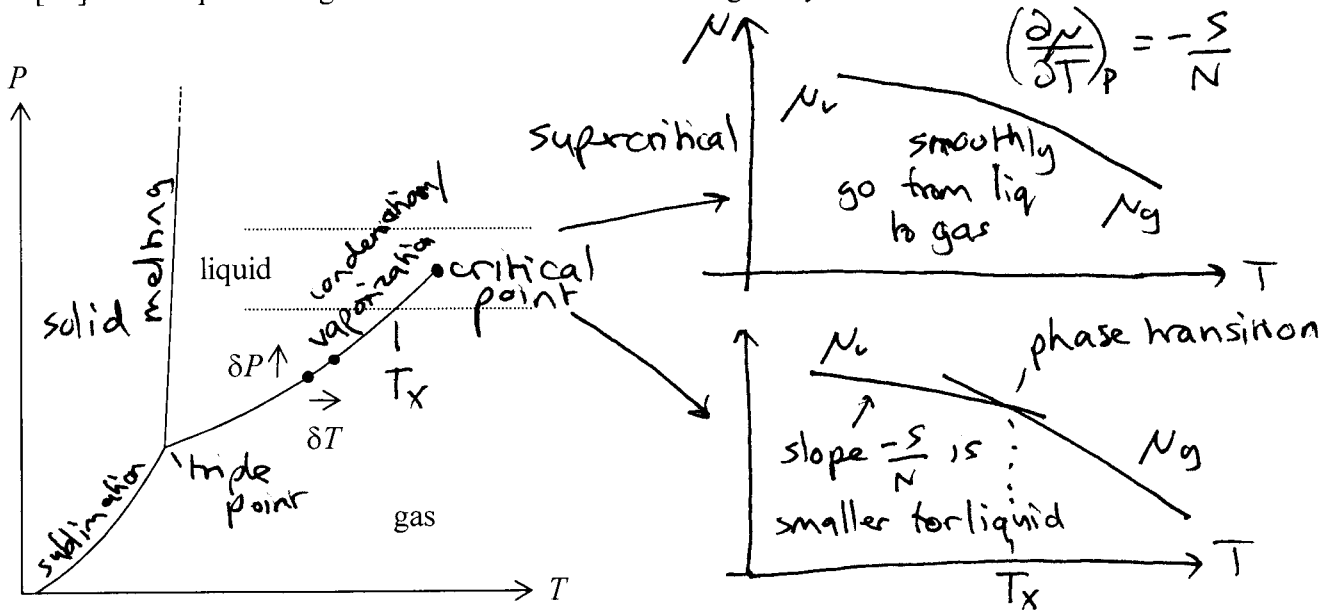 P
solid
melting
liquid
condensation/
vaporization
critical
point
δP ↑
→
δT
T_x
sublimation
triple
point
gas
T
supercritical
μ
(∂μ/∂T)_P = -S/N
μ_L
smoothly
go from liq
to gas
μ_g
T
μ_L
phase transition
slope -S/N is
smaller for liquid
μ_g
T
T_x